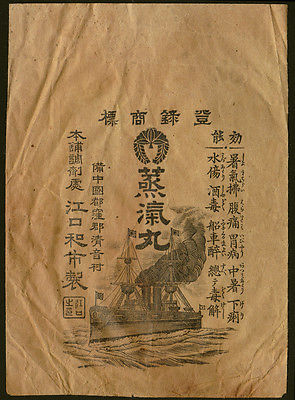 標商錄登
効能
暑氣拂 腹痛 胃病 中暑 下痢
水傷 酒毒 船車醉 總テ毒解
蒸氣丸
備中國都窪郡清音村
本舗調劑處 江口和市製